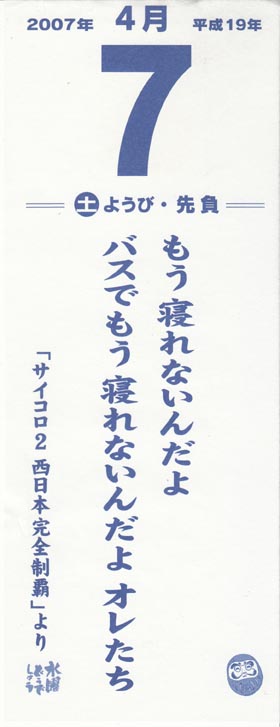 2007年 4月 平成19年
7
土 ようび・先負
もう寝れないんだよ
バスでもう寝れないんだよ オレたち
「サイコロ2 西日本完全制覇」より
水曜
どうで
しょう